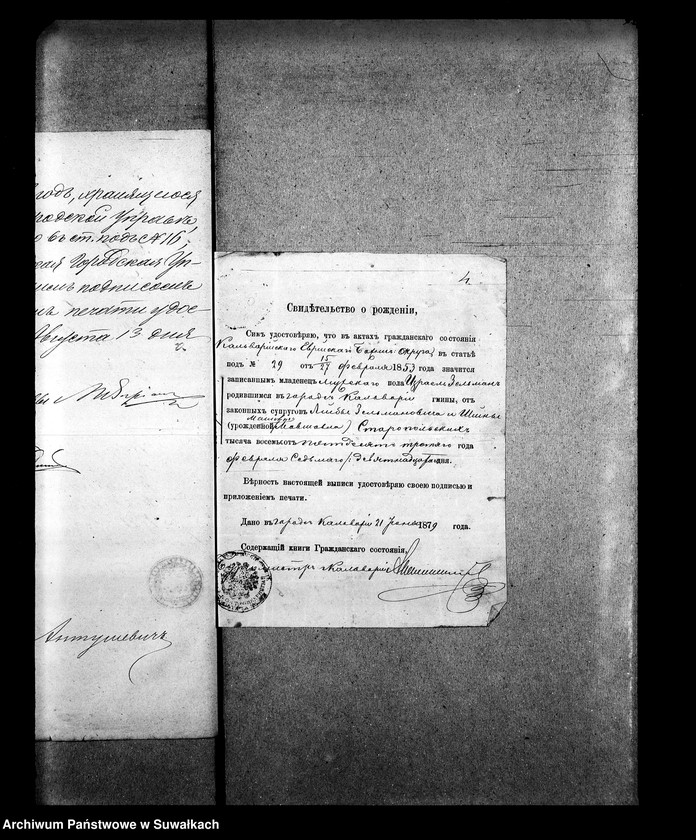 годъ, хранящегося
родской Управѣ
въ ст. подъ № 16,
кая Городская Уп-
подписомъ
печати удос-
Августа 13 дня
Антушевичъ
4.
Свидѣтельство о рожденіи,
Симъ удостовѣряю, что въ актахъ гражданскаго состоянія
Кальварійскаго Еврейскаго округа, въ статьѣ
подъ № 29 отъ 15/27 февраля 1853 года значится
записаннымъ младенецъ мужскаго пола Израель Зельманъ
родившимся въ городѣ Кальваріи гмины, отъ
законныхъ супруговъ Лейбы Зельмановича и Шейны
(урожденной) Старопольскихъ
тысяча восемьсотъ пятьдесятъ третьяго года
февраля Седьмаго / девятнадцатаго дня.
Вѣрность настоящей выписи удостовѣряю своею подписью и
приложеніемъ печати.
Дано въ городѣ Кальваріи 21 1879 года.
Содержащій книги Гражданскаго состоянія,
Кальваріи
Archiwum Państwowe w Suwałkach